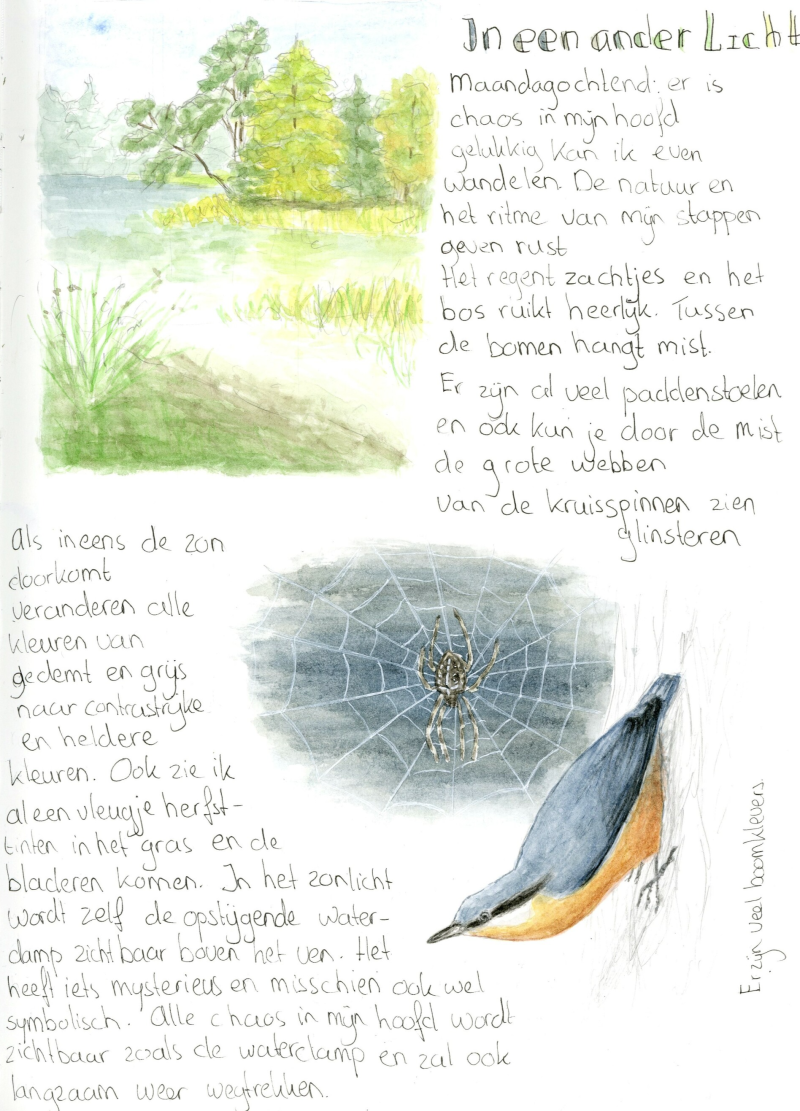 In een ander Licht
Maandagochtend: er is
chaos in mijn hoofd
gelukkig kan ik even
wandelen. De natuur en
het ritme van mijn stappen
geven rust
Het regent zachtjes en het
bos ruikt heerlijk. Tussen
de bomen hangt mist.
Er zijn al veel paddenstoelen
en ook kun je door de mist
de grote webben
van de kruisspinnen zien
glinsteren
Als ineens de zon
doorkomt
veranderen alle
kleuren van
gedemt en grijs
naar contrastrijke
en heldere
kleuren. Ook zie ik
al een vleugje herfst-
tinten in het gras en de
bladeren komen. In het zonlicht
wordt zelf de opstijgende water-
damp zichtbaar boven het ven. Het
heeft iets mysterieus en misschien ook wel
symbolisch. Alle chaos in mijn hoofd wordt
zichtbaar zoals de waterdamp en zal ook
langzaam weer wegtrekken.
Er zijn veel boomklevers.